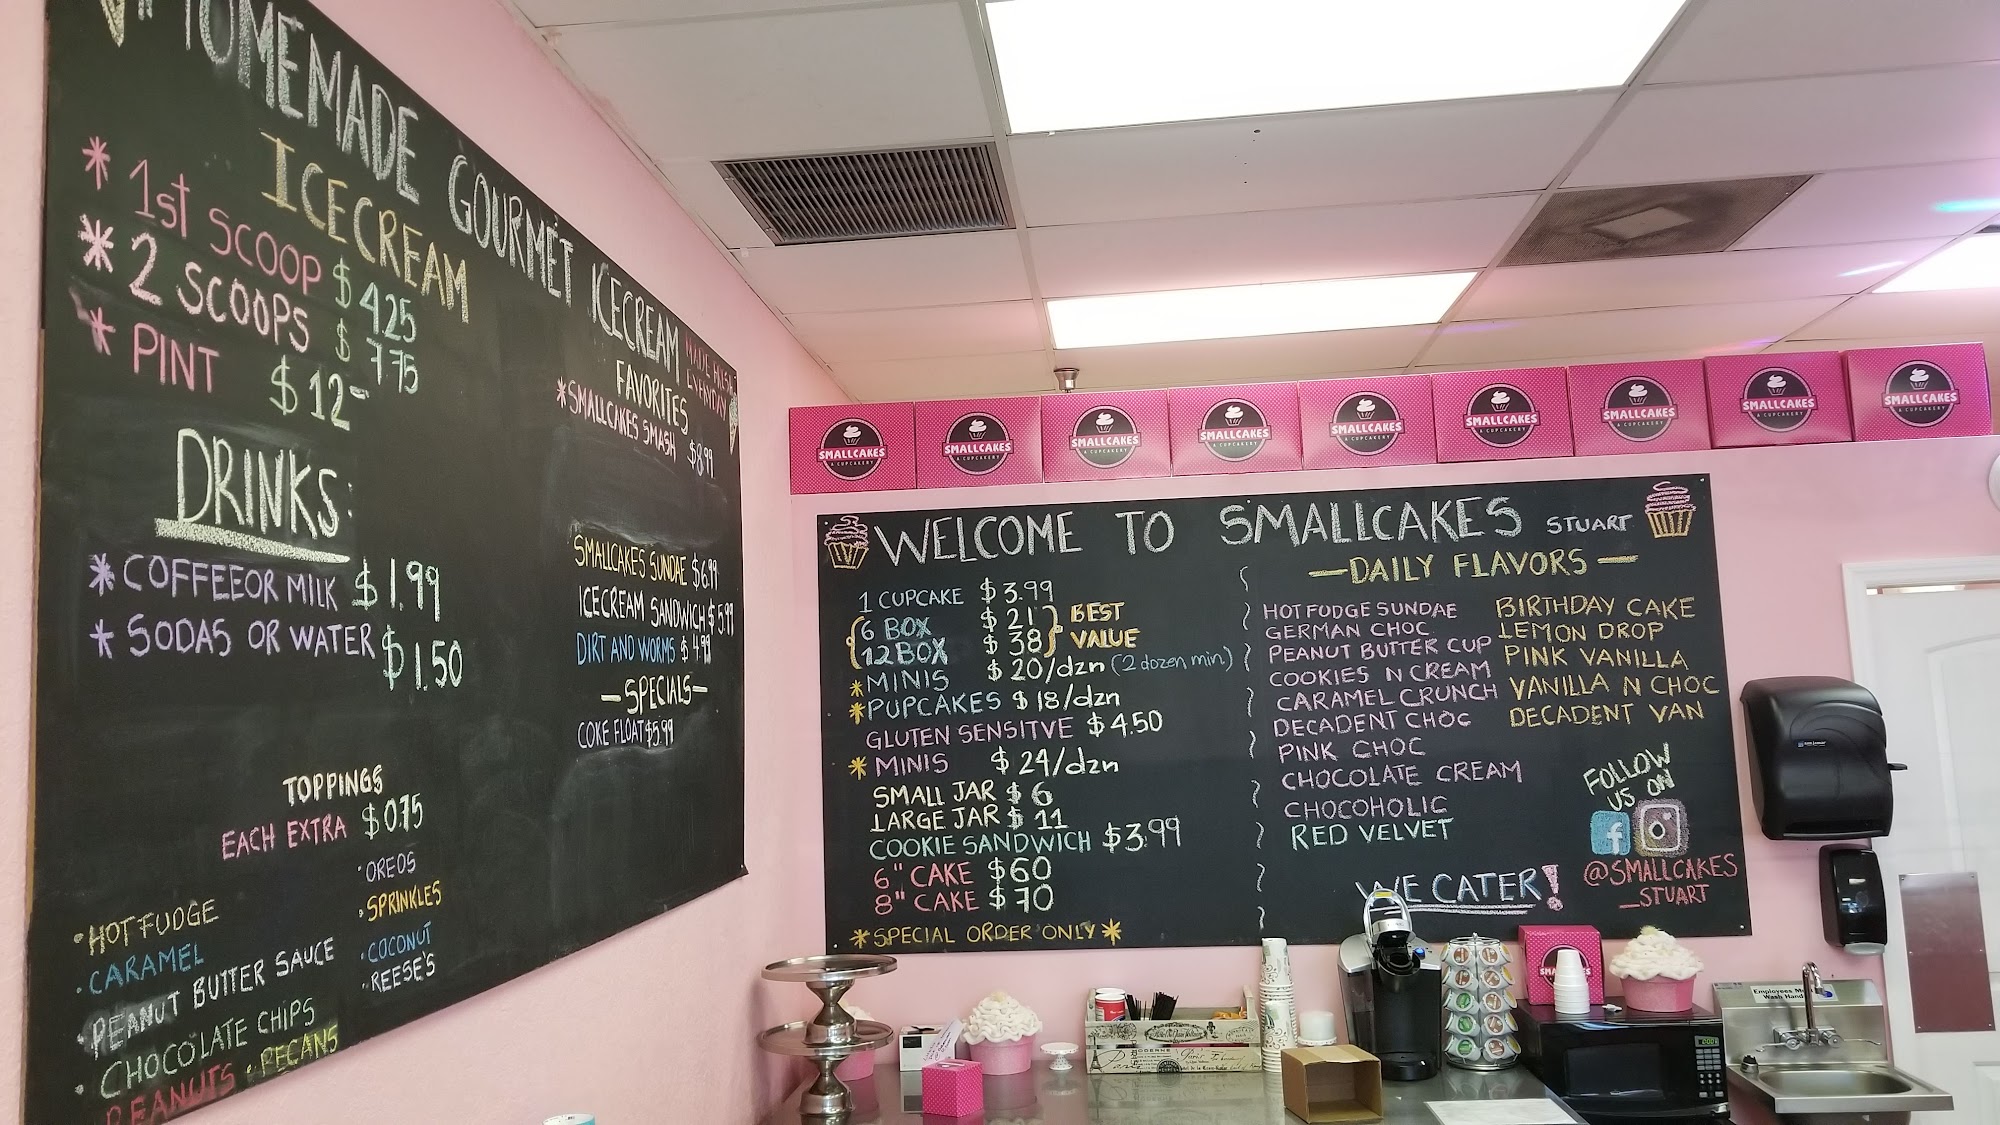 HOMEMADE GOURMET ICECREAM
MADE FRESH
EVERYDAY
ICECREAM
* 1st SCOOP $4.25
* 2 SCOOPS $7.75
* PINT $12-
DRINKS:
* COFFEEOR MILK $1.99
* SODAS OR WATER $1.50
TOPPINGS
EACH EXTRA $0.75
· HOT FUDGE
· CARAMEL
· PEANUT BUTTER SAUCE
· CHOCOLATE CHIPS
PEANUTS · PECANS
· OREOS
· SPRINKLES
· COCONUT
· REESE'S
FAVORITES
* SMALLCAKES SMASH $8.99
SMALLCAKES SUNDAE $6.99
ICECREAM SANDWICH $5.99
DIRT AND WORMS $4.99
—SPECIALS—
COKE FLOAT $5.99
SMALLCAKES
A CUPCAKERY
SMALLCAKES
A CUPCAKERY
SMALLCAKES
A CUPCAKERY
SMALLCAKES
A CUPCAKERY
SMALLCAKES
A CUPCAKERY
SMALLCAKES
A CUPCAKERY
SMALLCAKES
A CUPCAKERY
SMALLCAKES
A CUPCAKERY
SMALLCAKES
A CUPCAKERY
WELCOME TO SMALLCAKES STUART
1 CUPCAKE $3.99
6 BOX $21
12 BOX $38
BEST
VALUE
* MINIS $20/dzn (2 dozen min.)
* PUPCAKES $18/dzn
GLUTEN SENSITVE $4.50
* MINIS $24/dzn
SMALL JAR $6
LARGE JAR $11
COOKIE SANDWICH $3.99
6" CAKE $60
8" CAKE $70
* SPECIAL ORDER ONLY *
—DAILY FLAVORS—
HOT FUDGE SUNDAE
GERMAN CHOC
PEANUT BUTTER CUP
COOKIES N CREAM
CARAMEL CRUNCH
DECADENT CHOC
PINK CHOC
CHOCOLATE CREAM
CHOCOHOLIC
RED VELVET
BIRTHDAY CAKE
LEMON DROP
PINK VANILLA
VANILLA N CHOC
DECADENT VAN
FOLLOW
US ON
f
@SMALLCAKES
_STUART
WE CATER!
Employees Must
Wash Hands
Paris